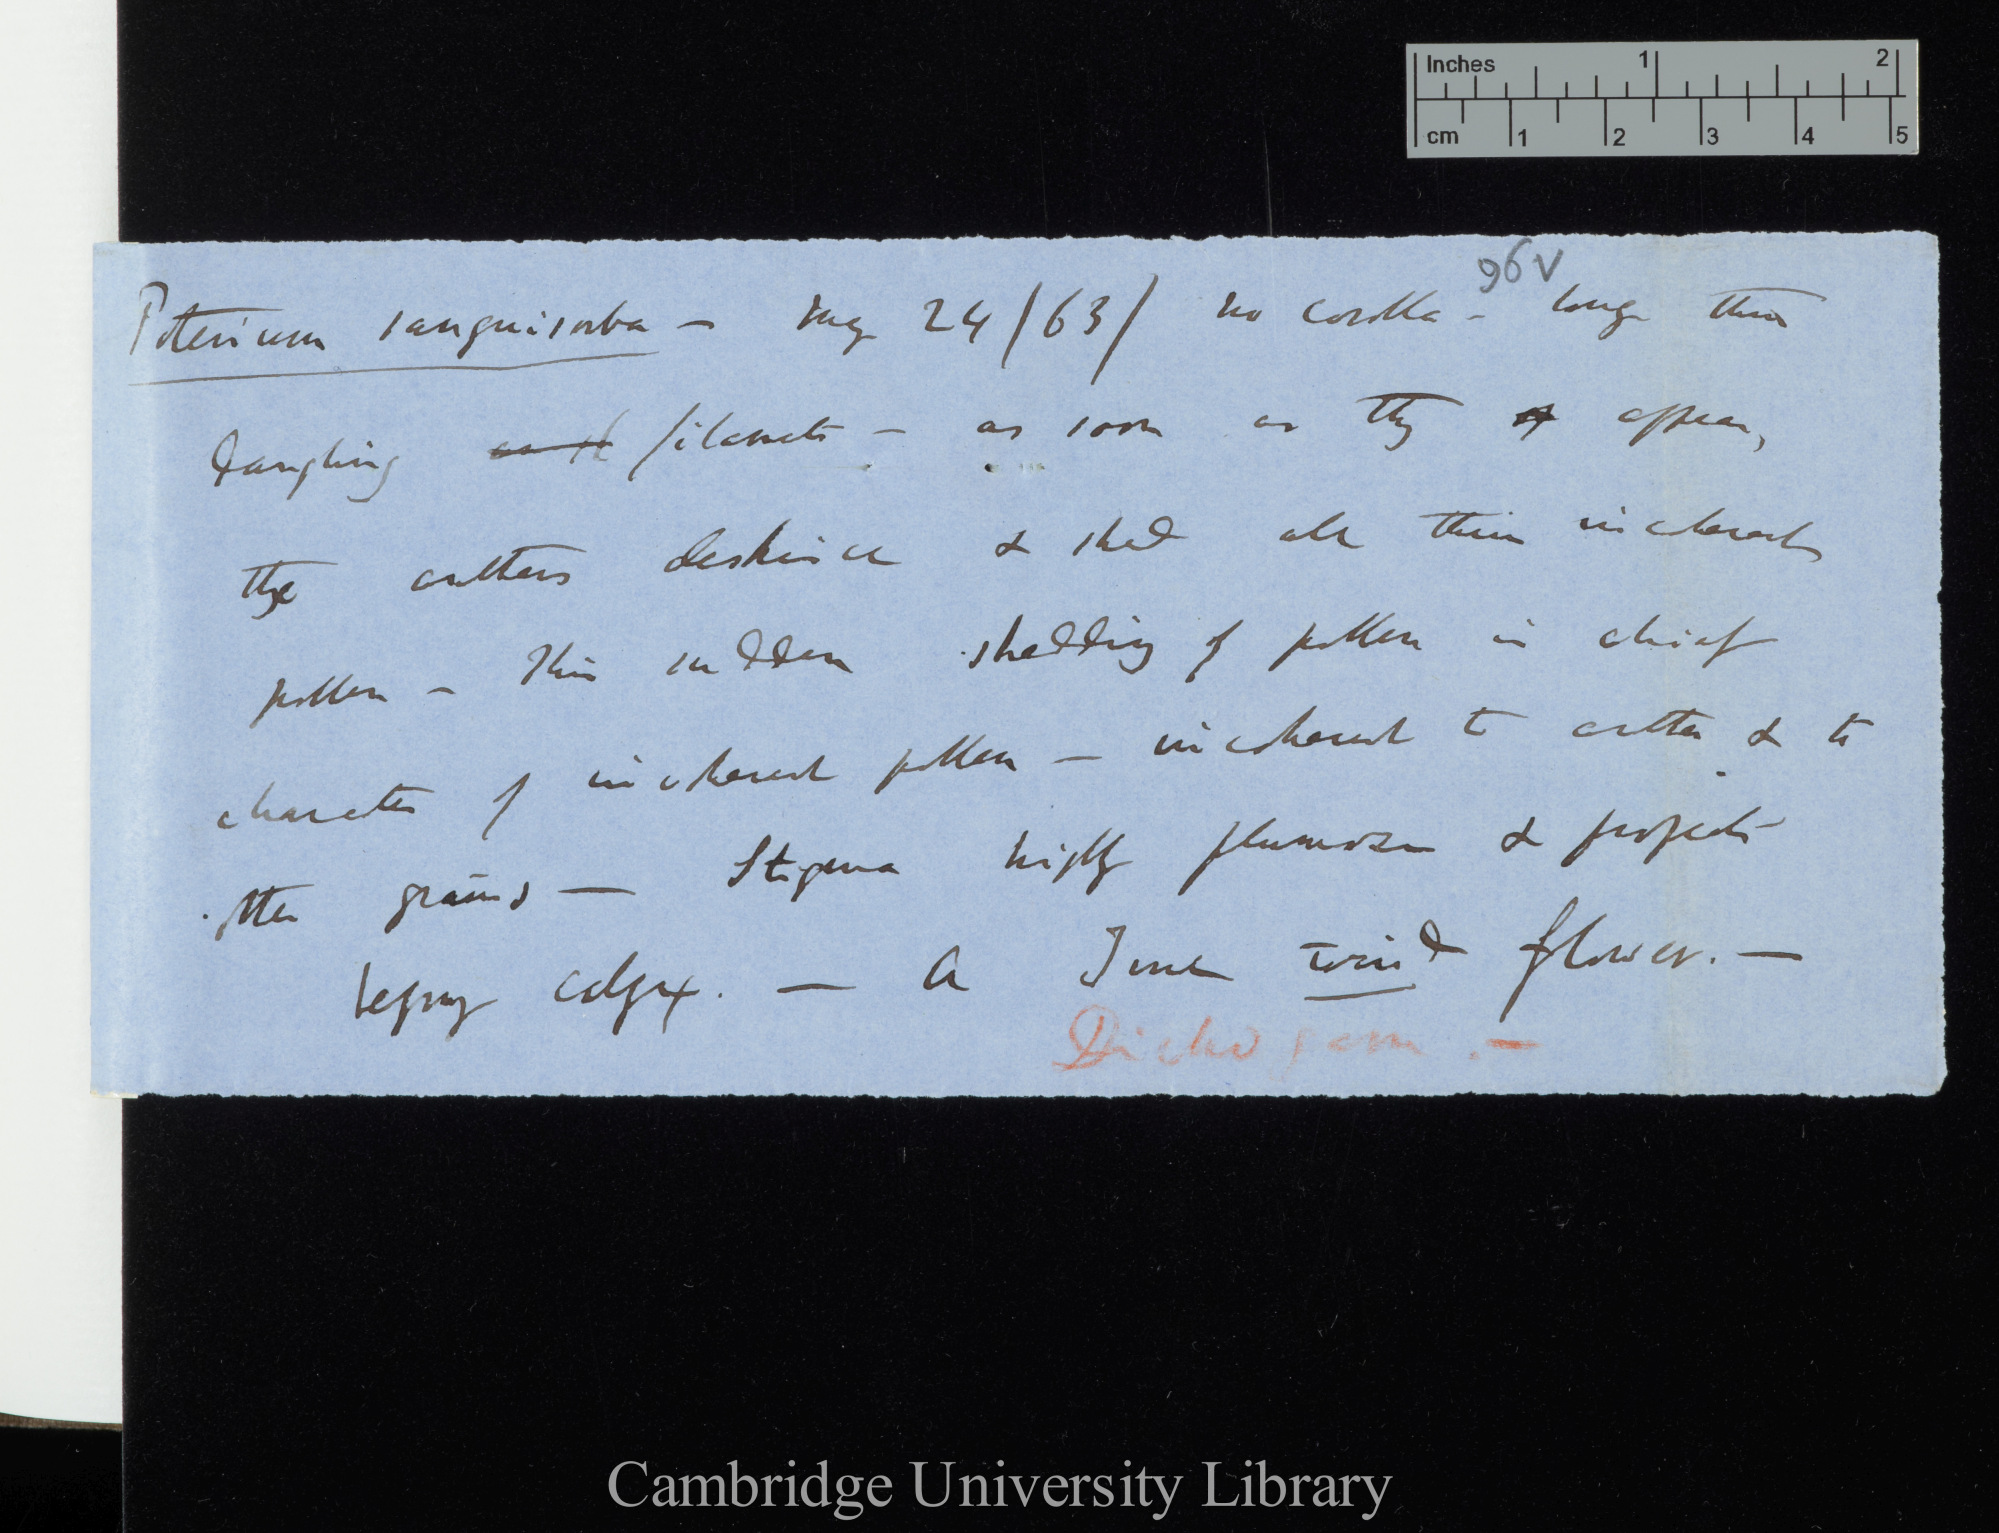 Inches 1 2
cm 1 2 3 4 5
96V
Poterium sanguisorba — May 24/63/ no corolla — long thin
dangling filaments — as soon as they appear,
the anthers dehisce & shed all their incoherent
pollen — This sudden shedding of pollen is chief
character of incoherent pollen — incoherent to anther & to
other grains — Stigma highly plumose & projects
beyond calyx. — A True wind flower. —
Dichogam. —
Cambridge University Library